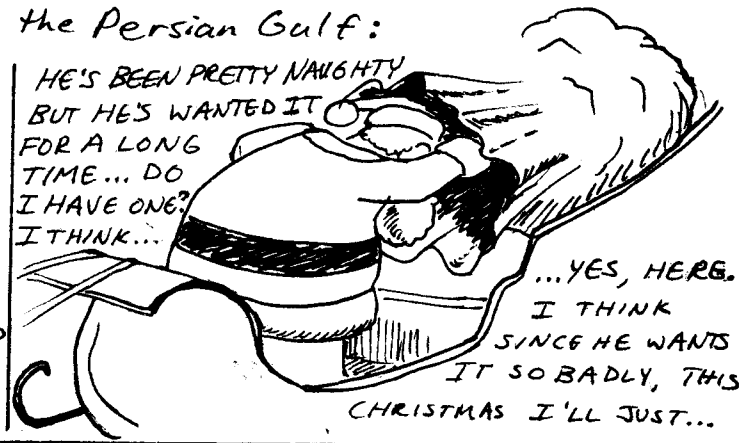 the Persian Gulf:
HE'S BEEN PRETTY NAUGHTY
BUT HE'S WANTED IT
FOR A LONG
TIME... DO
I HAVE ONE?
I THINK...
...YES, HERE.
I THINK
SINCE HE WANTS
IT SO BADLY, THIS
CHRISTMAS I'LL JUST...